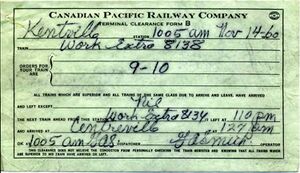 CANADIAN PACIFIC RAILWAY COMPANY
TERMINAL CLEARANCE FORM B
Kentville STATION 1005 am Nov 14-60
Work Extra 8138
ORDERS FOR YOUR TRAIN ARE
9-10
ALL TRAINS WHICH ARE SUPERIOR AND ALL TRAINS OF THE SAME CLASS DUE TO ARRIVE AND LEAVE, HAVE ARRIVED
AND LEFT EXCEPT Nil
THE NEXT TRAIN AHEAD Work Extra 8134 LEFT AT 110 pm
Centreville AT 127 pm
OK 1005 am DISPATCHER OPERATOR
THIS CLEARANCE DOES NOT RELIEVE THE CONDUCTOR FROM PERSONALLY CHECKING THE TRAIN REGISTER AND KNOWING THAT ALL TRAINS WHICH ARE
SUPERIOR TO HIS TRAIN HAVE ARRIVED OR LEFT.